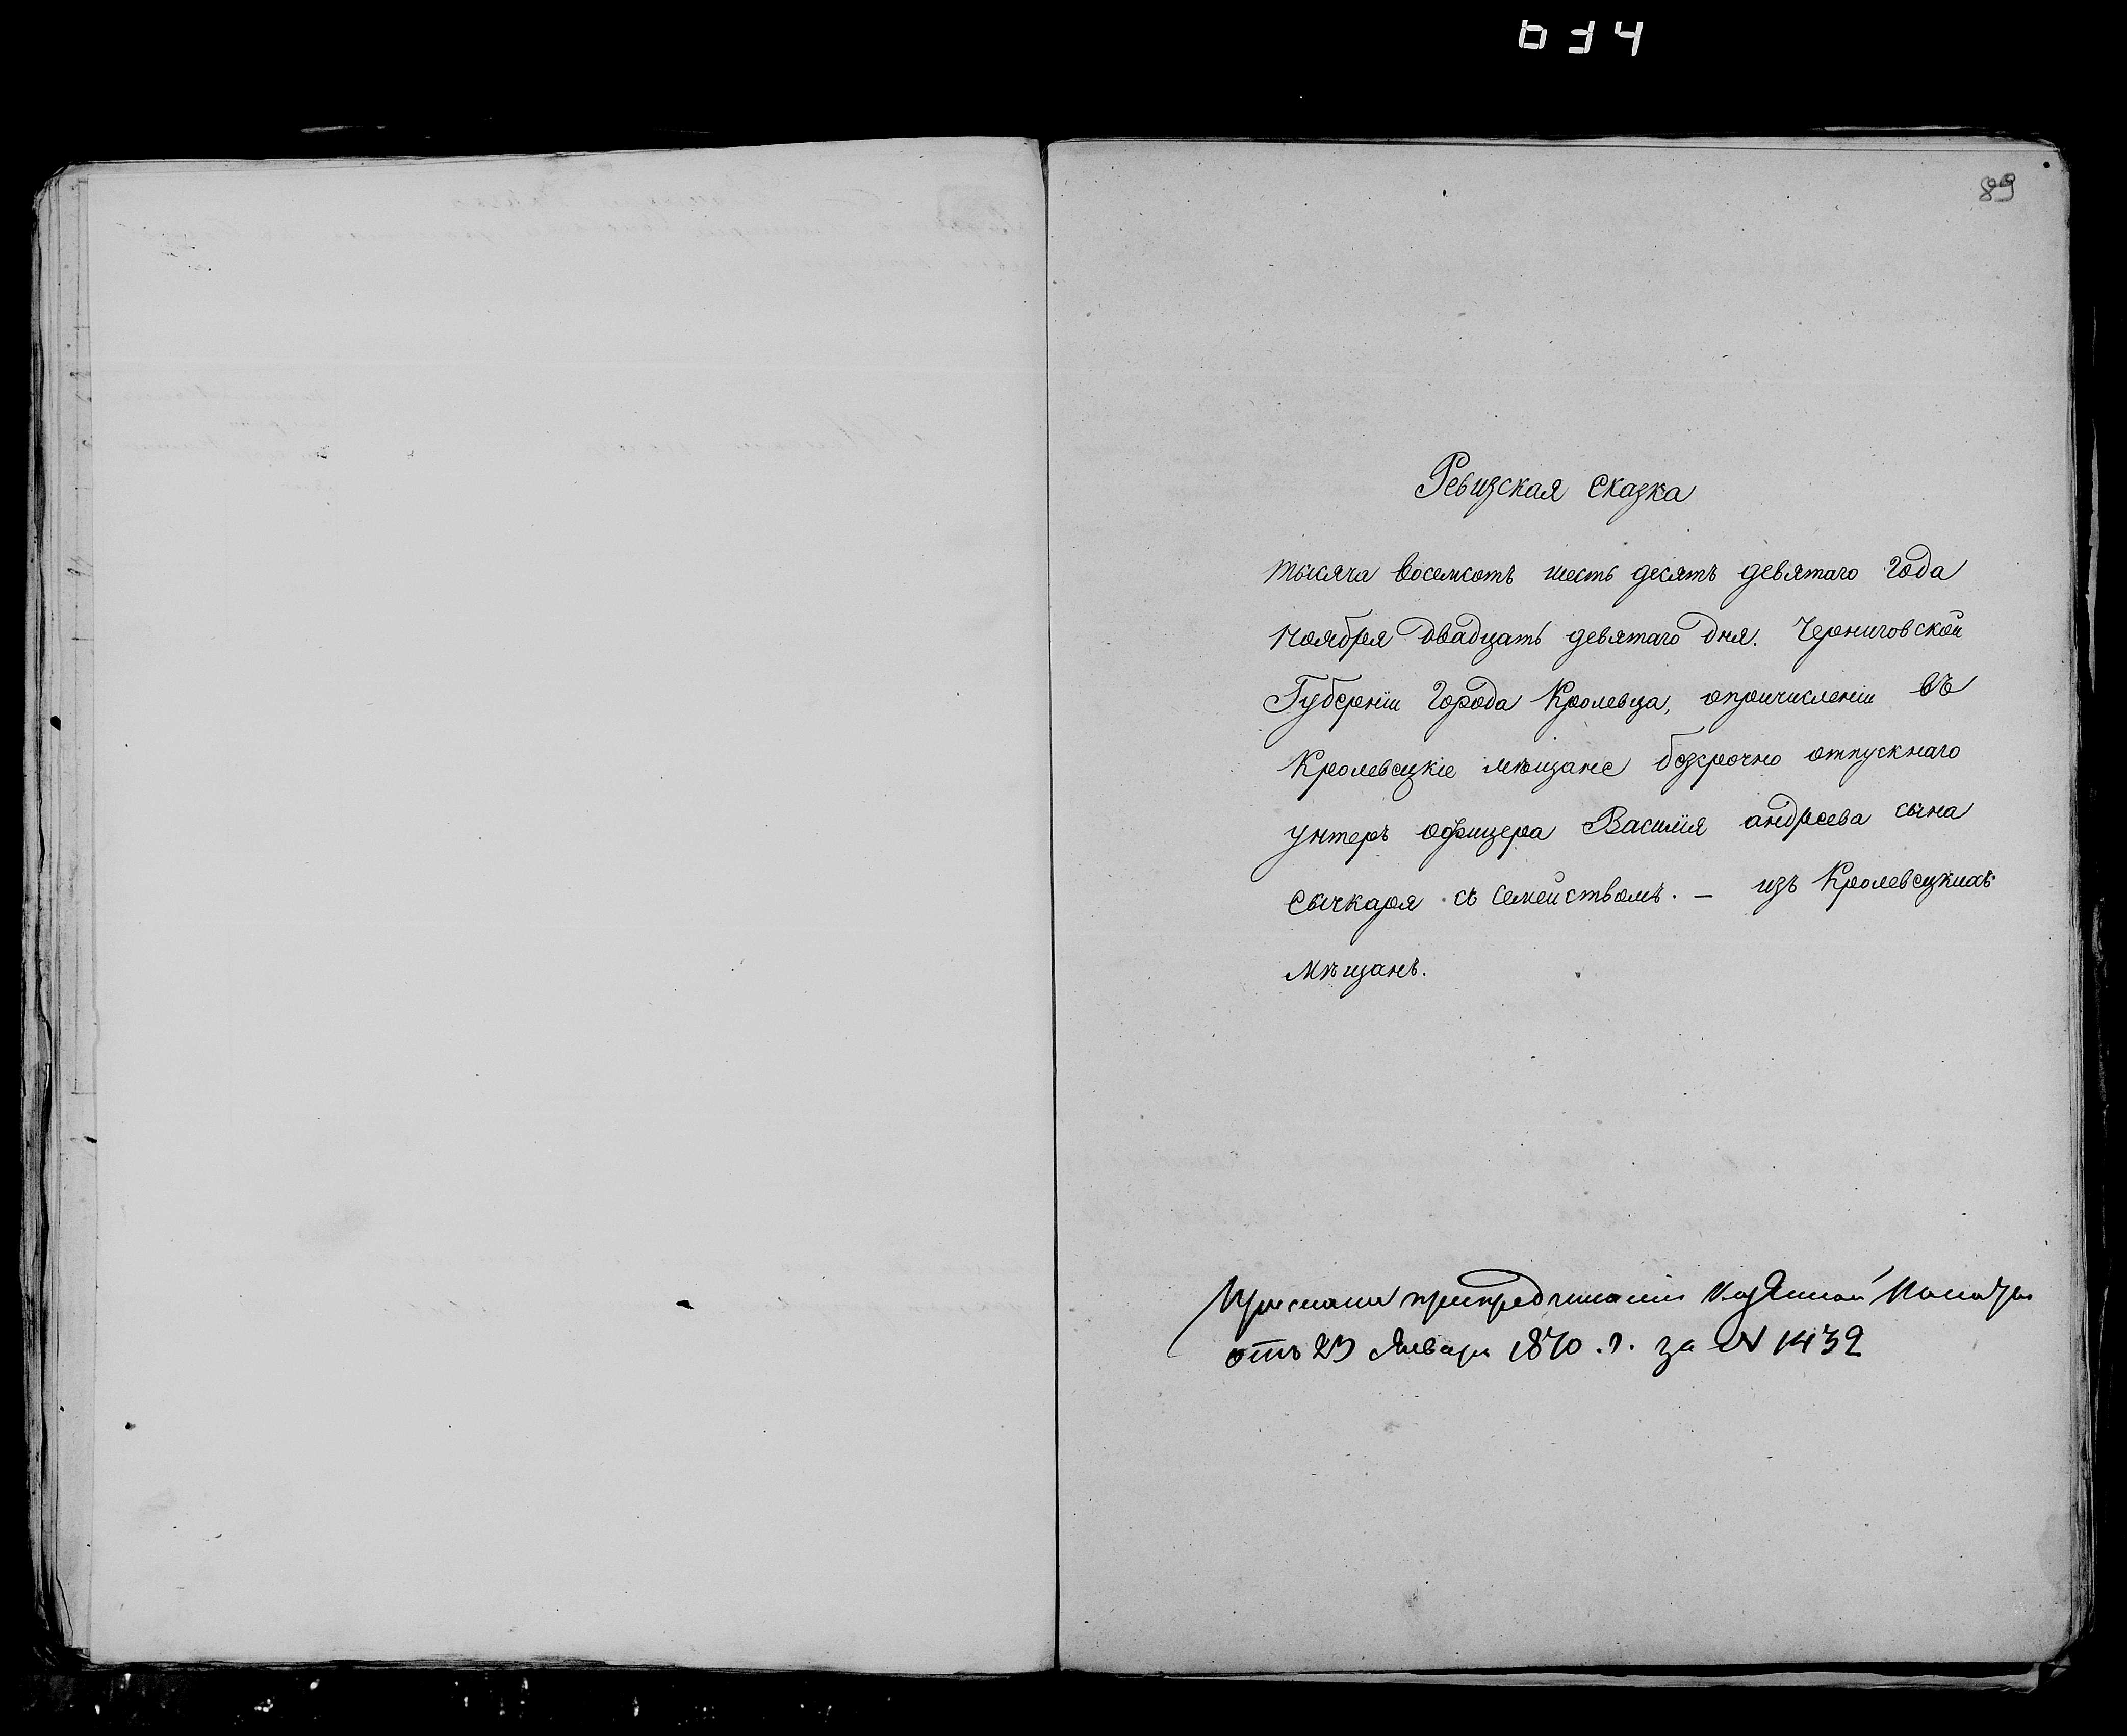 634
89
Ревизская Сказка
тысяча восемсотъ шесть десятъ девятаго года
Ноября двадцать девятаго дня. Черниговской
Губерніи Города Кролевца, опричисленіи въ
Кролевецкіе мѣщане безсрочно отпускнаго
унтеръ офицера Василія андреева сына
Сычкаря съ семействомъ. — изъ Кролевецкихъ
мѣщанъ.
Прислана припредписаніи Казенной Палаты
отъ 23 Января 1870 .г. за № 1432